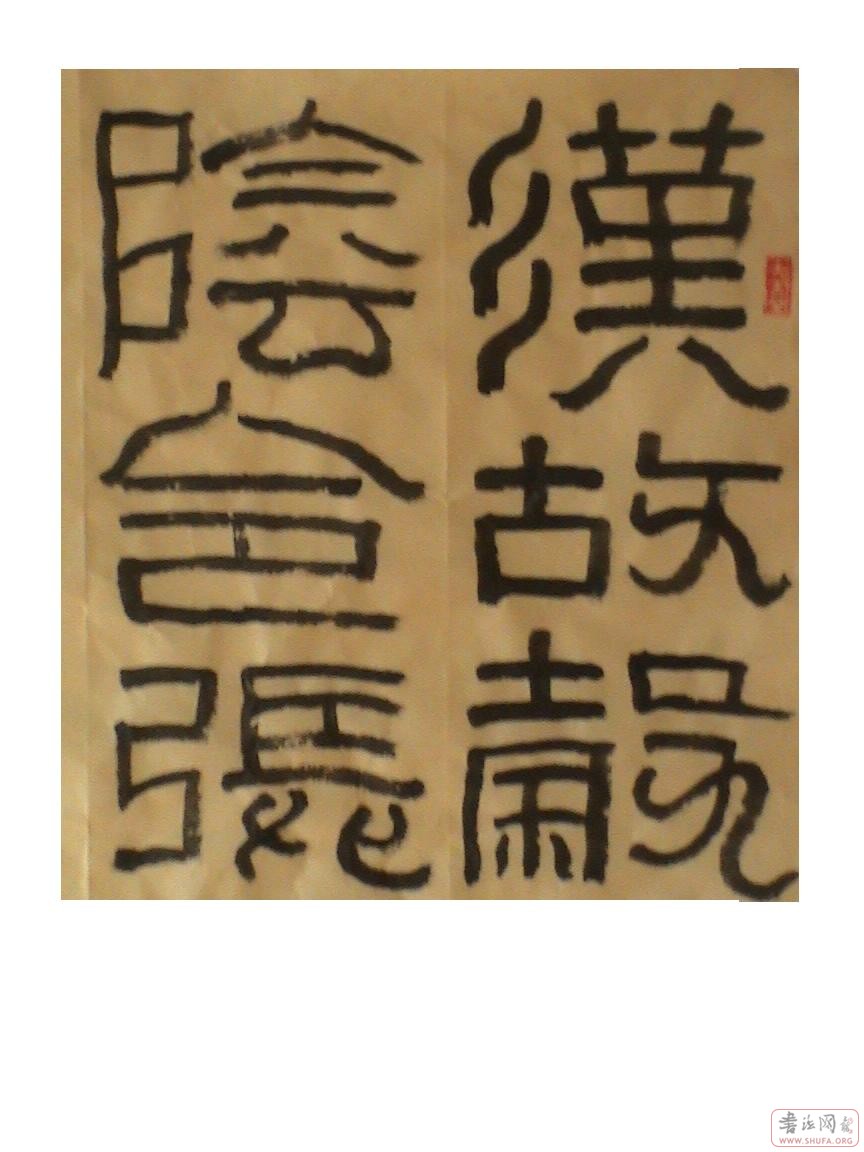 漢故穀
陰令張
書法网
WWW.SHUFA.ORG